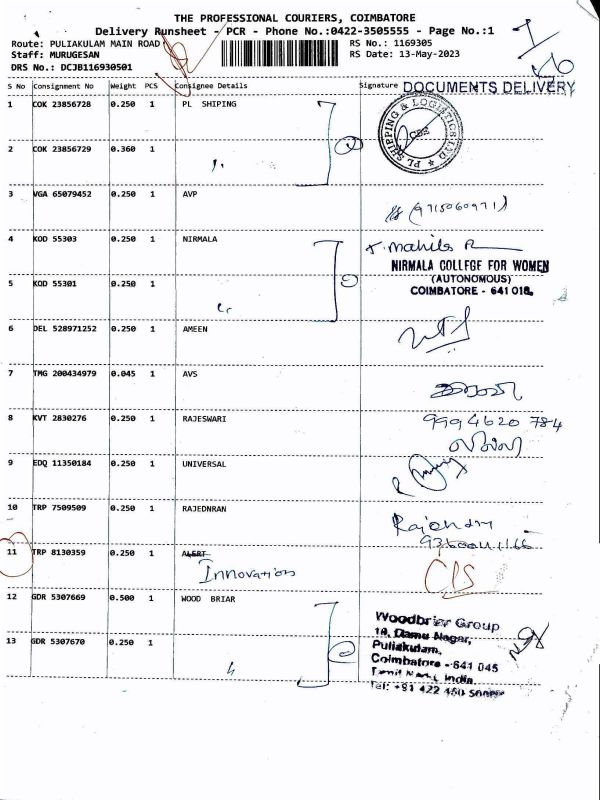 THE PROFESSIONAL COURIERS, COIMBATORE
Delivery Runsheet - PCR - Phone No.:0422-3505555 - Page No.:1
Route: PULIAKULAM MAIN ROAD
Staff: MURUGESAN
DRS No.: DCJB116930501
RS No.: 1169305
RS Date: 13-May-2023
S No Consignment No Weight PCS Consignee Details Signature DOCUMENTS DELIVERY
1 COK 23856728 0.250 1 PL SHIPING
PL SHIPPING & LOGISTICS LTD
CBE
2 COK 23856729 0.360 1
3 VGA 65079452 0.250 1 AVP
(9715060971)
4 KOD 55303 0.250 1 NIRMALA
NIRMALA COLLEGE FOR WOMEN
(AUTONOMOUS)
COIMBATORE - 641 018.
5 KOD 55301 0.250 1
6 DEL 528971252 0.250 1 AMEEN
7 TMG 200434979 0.045 1 AVS
8 KVT 2830276 0.250 1 RAJESWARI
9994620 784
9 EDQ 11350184 0.250 1 UNIVERSAL
10 TRP 7509509 0.250 1 RAJEDNRAN
11 TRP 8130359 0.250 1 ALERT
Innovation
12 GDR 5307669 0.500 1 WOOD BRIAR
Woodbrier Group
Puliakulam,
Coimbatore - 641 045
13 GDR 5307670 0.250 1
Tamil Nadu, India.